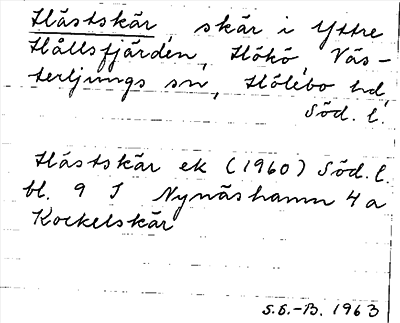 Hästskär, skär i Yttre
Hållsfjärden, Hökö, Väs-
terljungs sn, Hölebo hd,
Söd. l.
Hästskär ek (1960) Söd. l.
bl. 9 I Nynäshamn 4 a
Kockelskär
S.S.-B. 1963